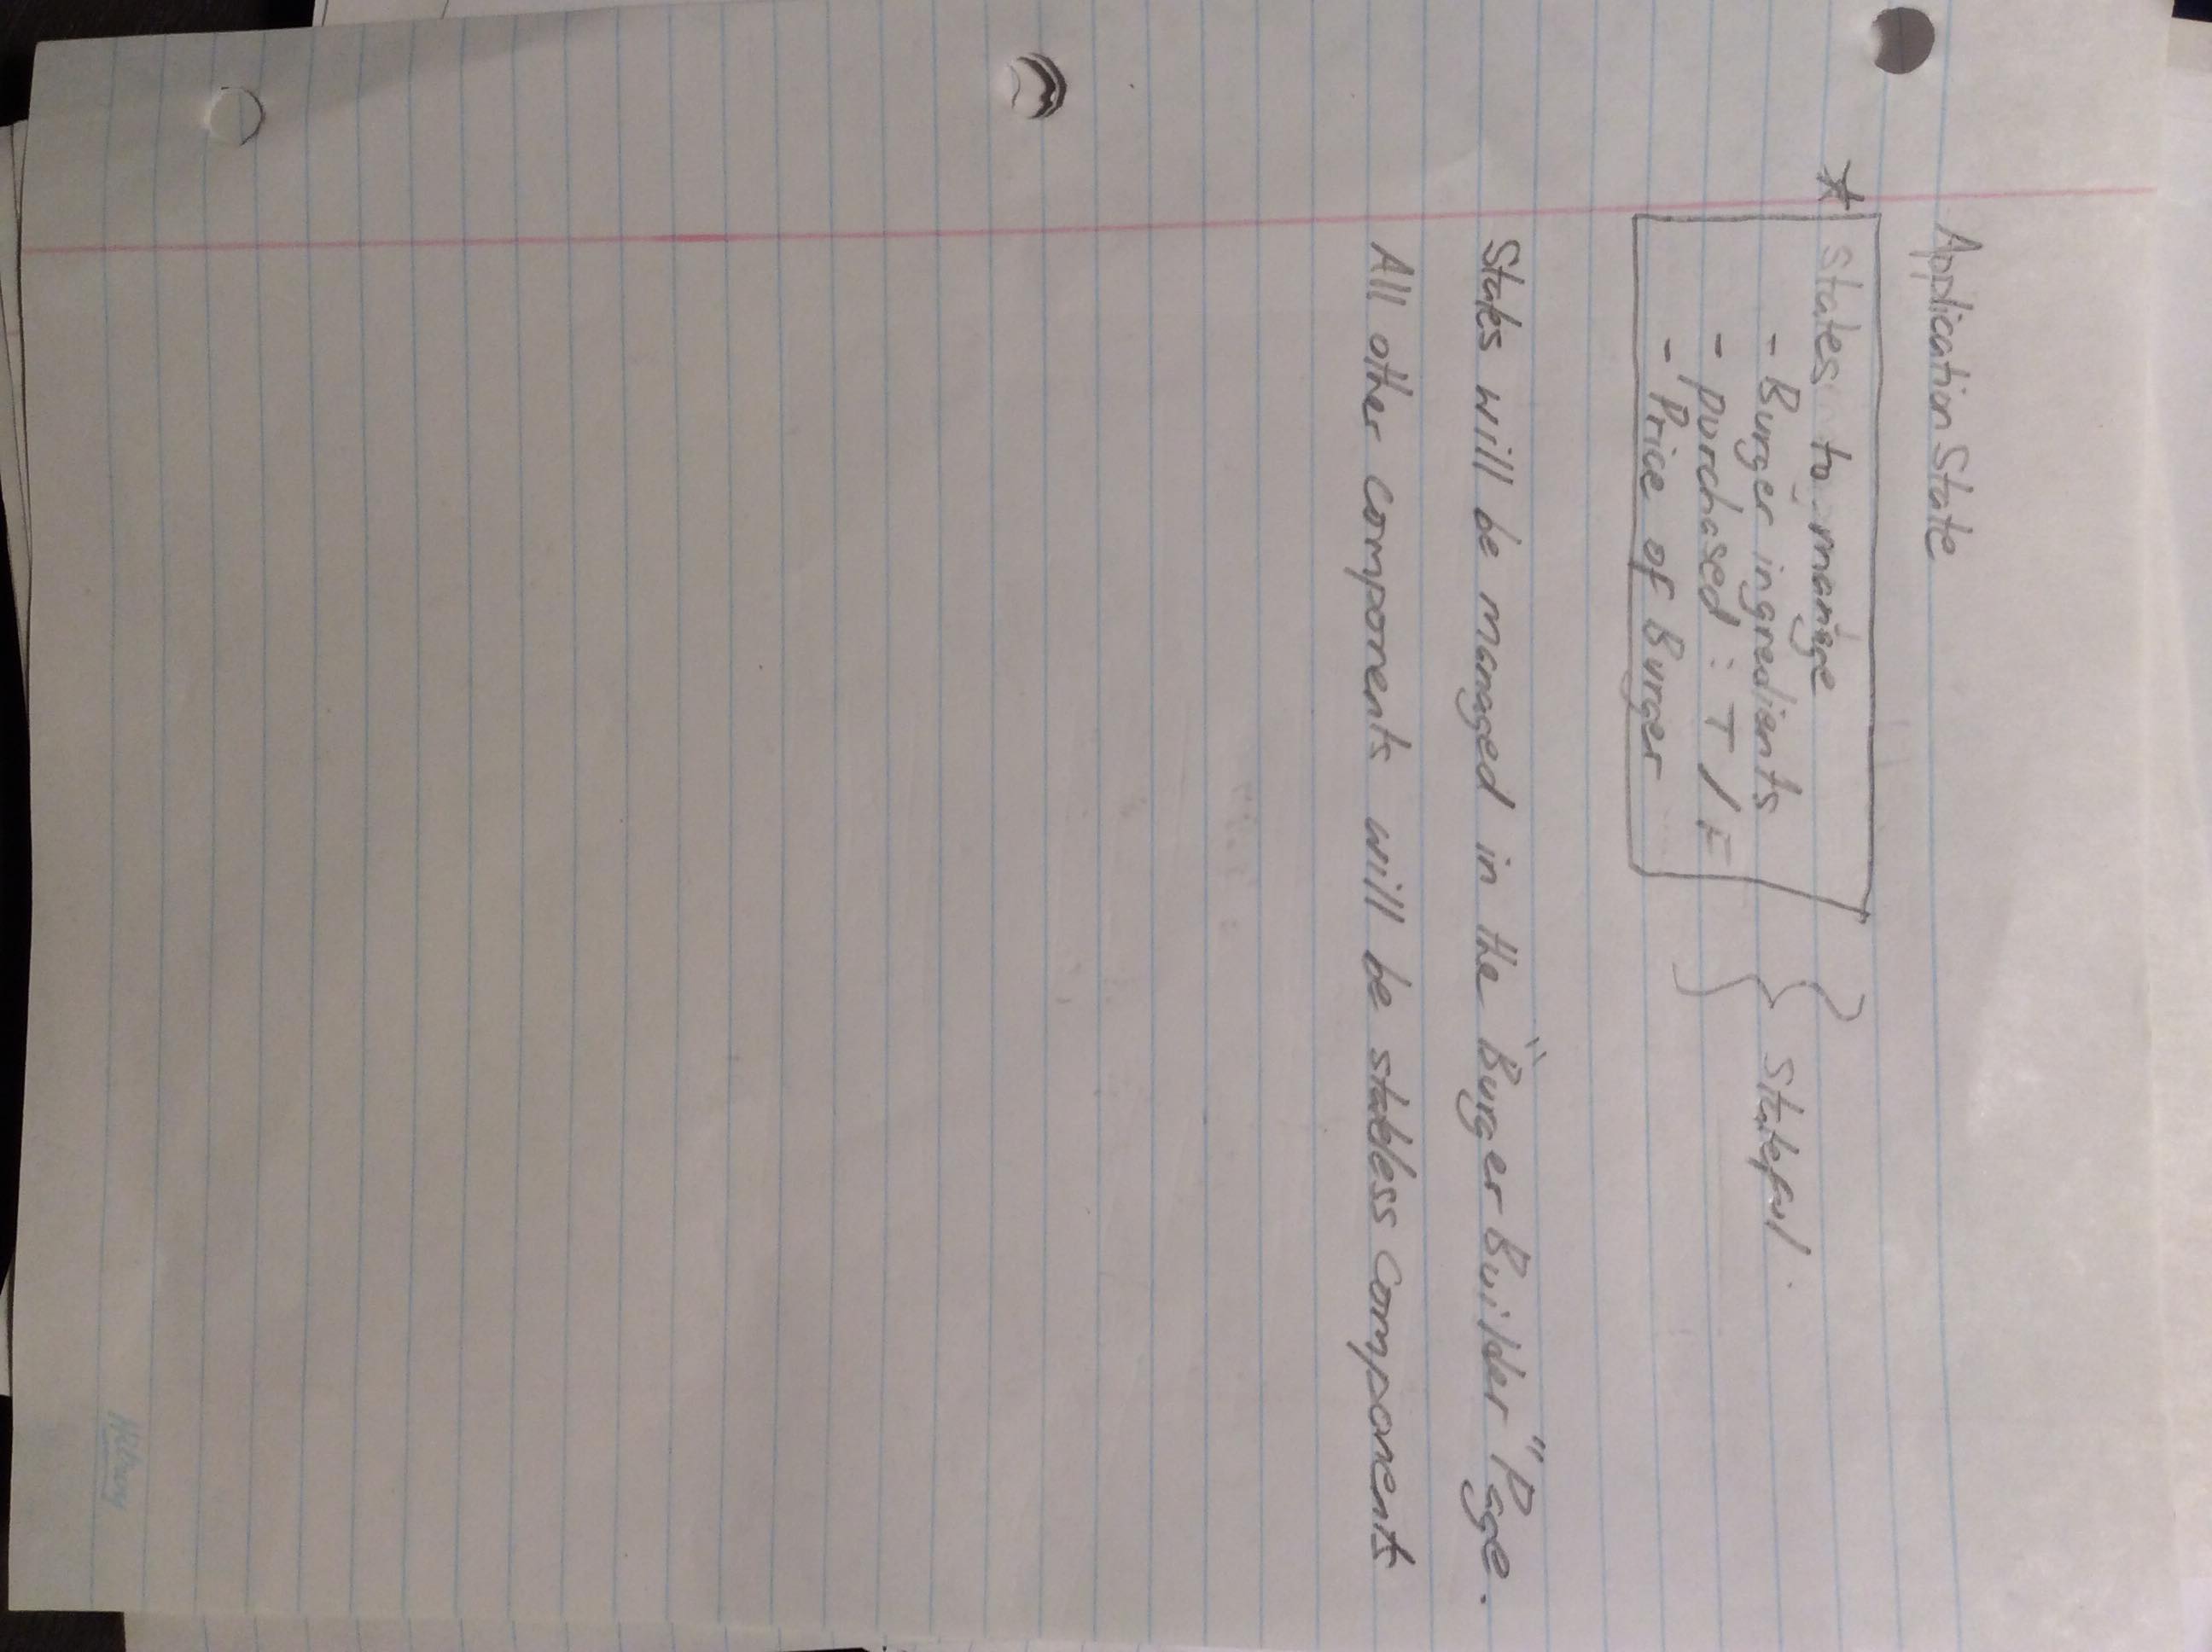 Application State
* States to manage
- Burger ingredients
- purchased : T / F
- Price of Burger
} Stateful.
States will be managed in the "Burger Builder" Page.
All other components will be stateless components
Hilroy